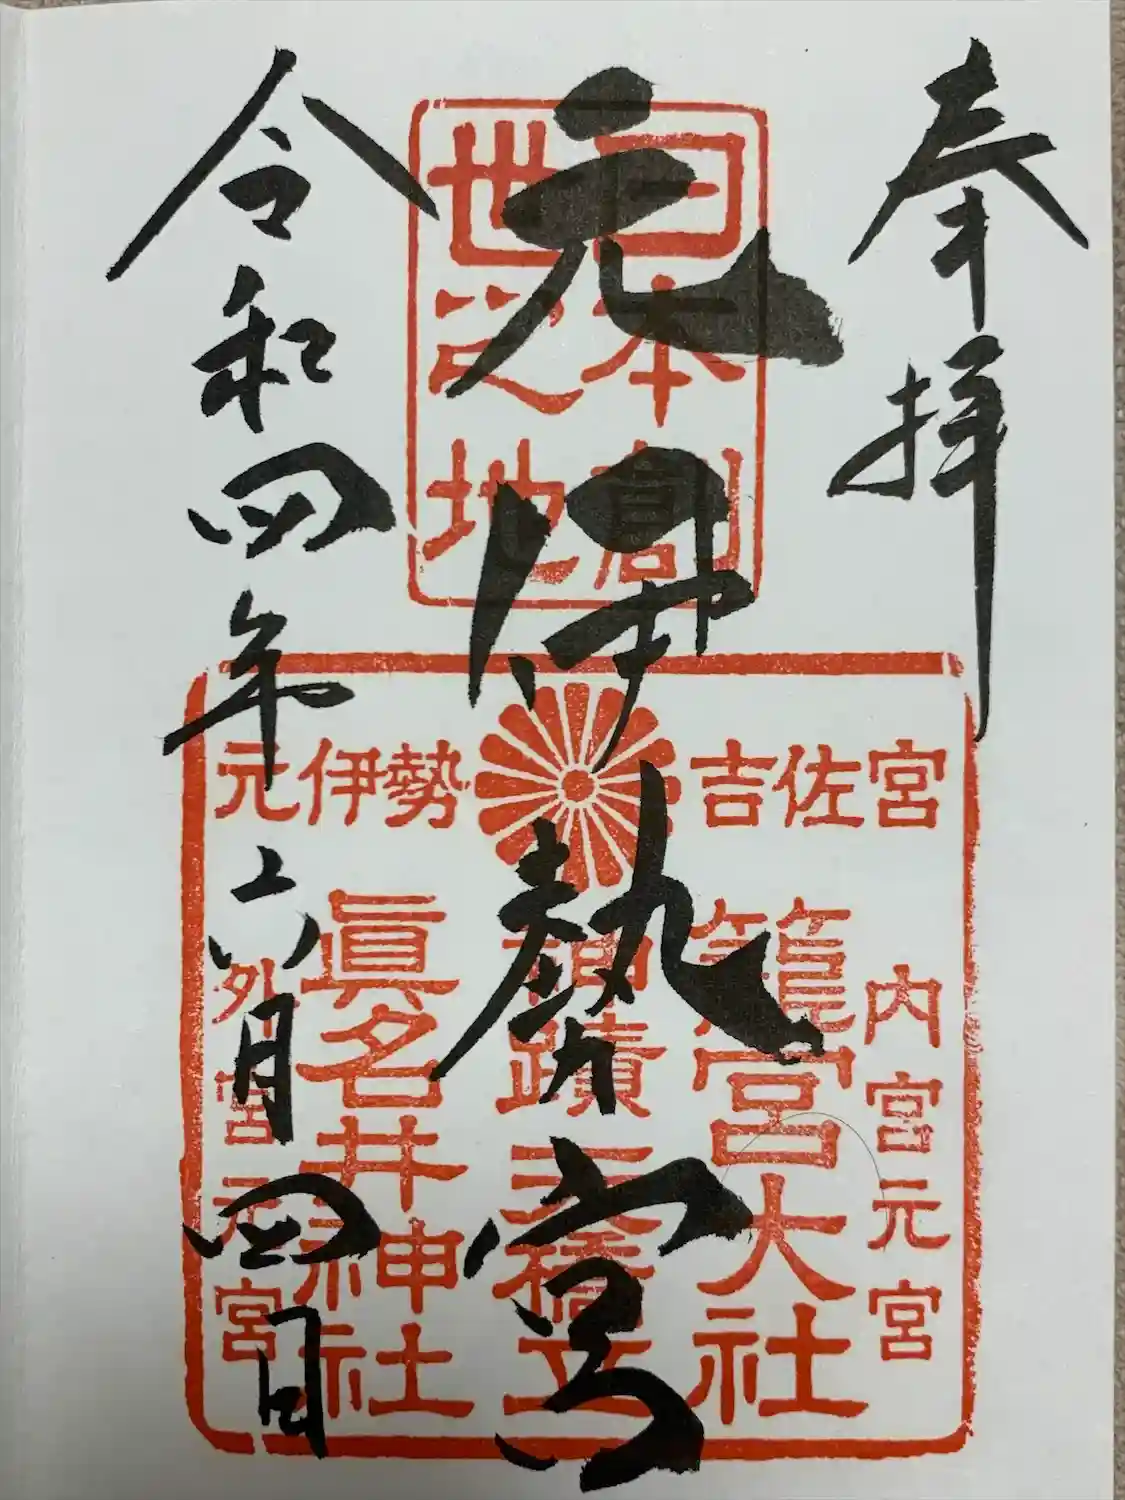 奉拝
元伊勢宮
令和四年六月四日
日本創
世之地
宮佐吉
勢伊元
内宮元宮
籠宮大社
神蹟天橋立
眞名井神社
外宮元宮